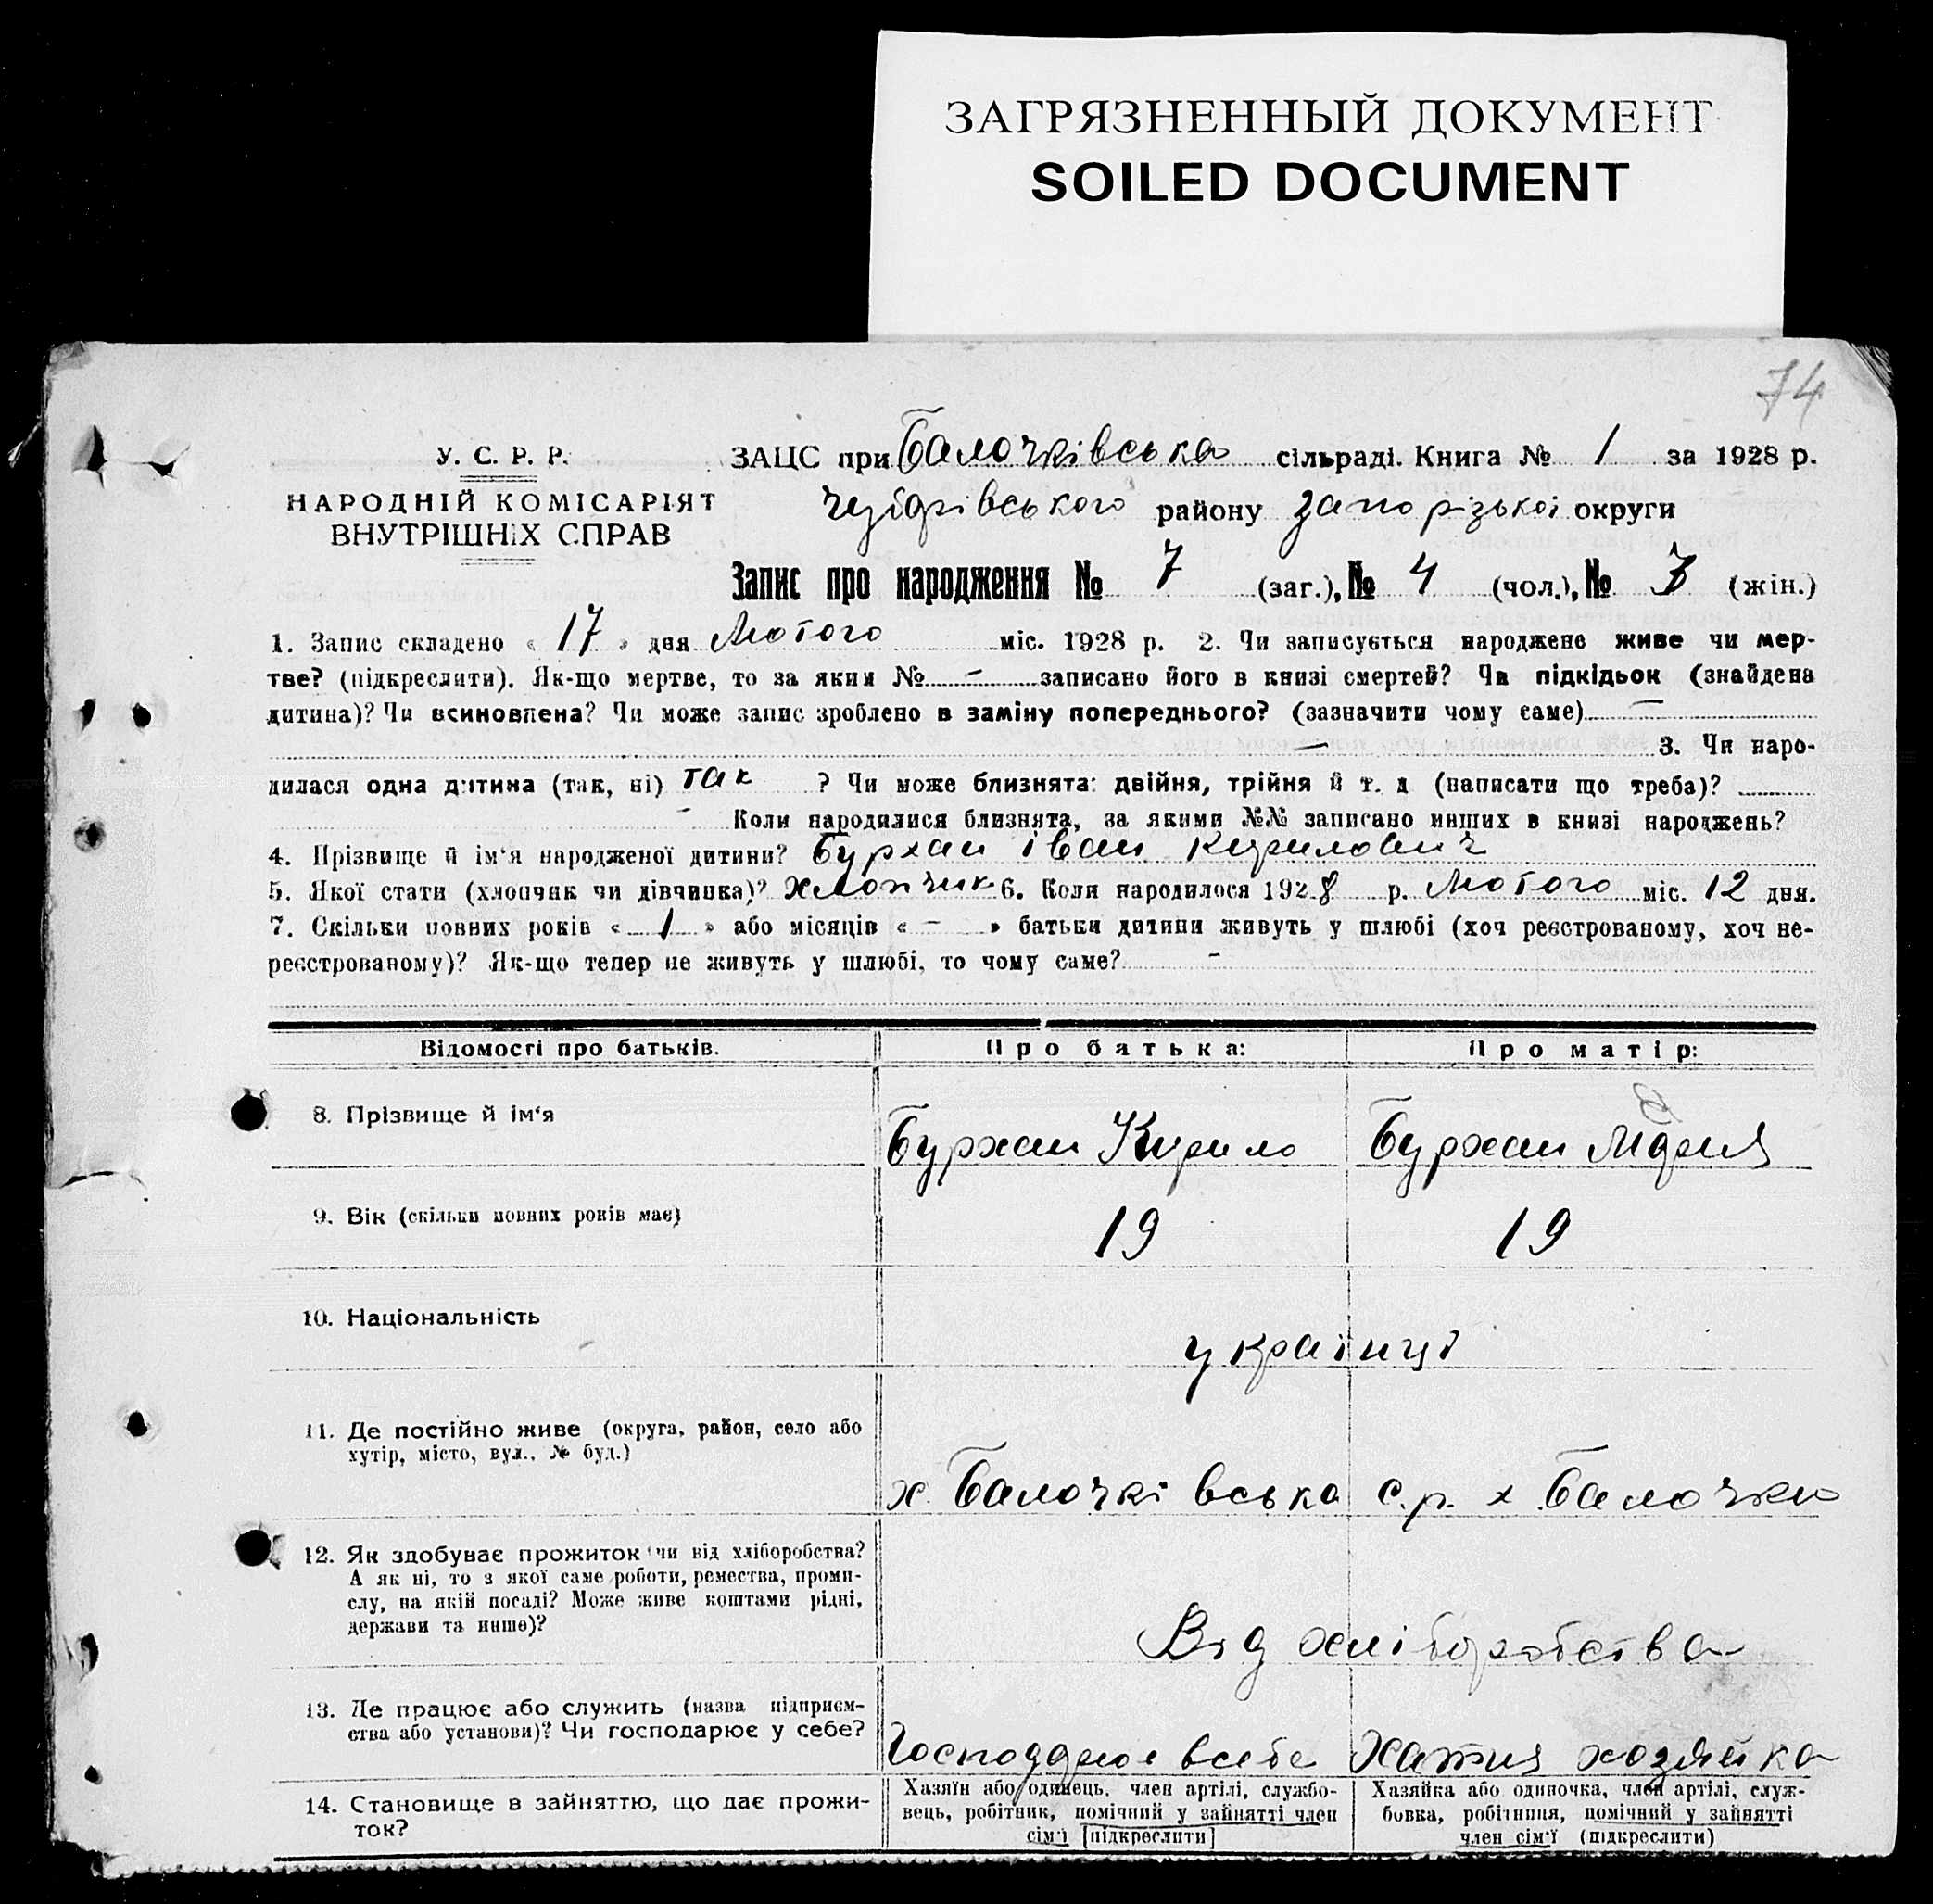 ЗАГРЯЗНЕННЫЙ ДОКУМЕНТ
SOILED DOCUMENT
74
У. С. Р. Р.
НАРОДНІЙ КОМІСАРІЯТ
ВНУТРІШНІХ СПРАВ
ЗАЦС при Балочківська сільраді. Книга № 1 за 1928 р.
району Запорізької округи
Запис про народження № 7 (заг.), № 4 (чол.), № 3 (жін.)
1. Запис складено « 17 » дня Лютого міс. 1928 р. 2. Чи записується народжене живе чи мер-
тве? (підкреслити). Як-що мертве, то за яким № - записано його в книзі смертей? Чи підкідьок (знайдена
дитина)? Чи всиновлена? Чи може запис зроблено в заміну попереднього? (зазначити чому саме) —
— 3. Чи наро-
дилася одна дитина (так, ні) так ? Чи може близнята: двійня, трійня й т. д (написати що треба)?
- Коли народилися близнята, за якими №№ записано инших в книзі народжень?
4. Прізвище й ім'я народженої дитини? Бурхан Іван Кирилович
5. Якої стати (хлопчик чи дівчинка)? Хлопчик 6. Коли народилося 1928 р. Лютого міс. 12 дня.
7. Скільки повних років « 1 » або місяців « - » батьки дитини живуть у шлюбі (хоч реєстрованому, хоч не-
реєстрованому)? Як-що тепер не живуть у шлюбі, то чому саме? -
Відомості про батьків. Про батька: Про матір:
8. Прізвище й ім'я Бурхан Кирило Бурхан Марія
9. Вік (скільки повних років має) 19 19
10. Національність українці
11. Де постійно живе (округа, район, село або
хутір, місто, вул., № буд.)
х. Балочківська с.р. х Балочки
12. Як здобуває прожиток чи від хліборобства?
А як ні, то з якої саме роботи, ремества, проми-
слу, на якій посаді? Може живе коштами рідні,
держави та инше)?
Від хліборобства
13. Де працює або служить (назва підприєм-
ства або установи)? Чи господарює у себе?
Господарює в себе Хатня хозяйка
14. Становище в зайняттю, що дає прожи-
ток?
Хазяїн або одинець, член артілі, службо-
вець, робітник, помічний у зайнятті член
сім'ї [підкреслити]
Хазяйка або одиночка, член артілі, служ-
бовка, робітниця, помічний у зайнятті
член сім'ї (підкреслити)